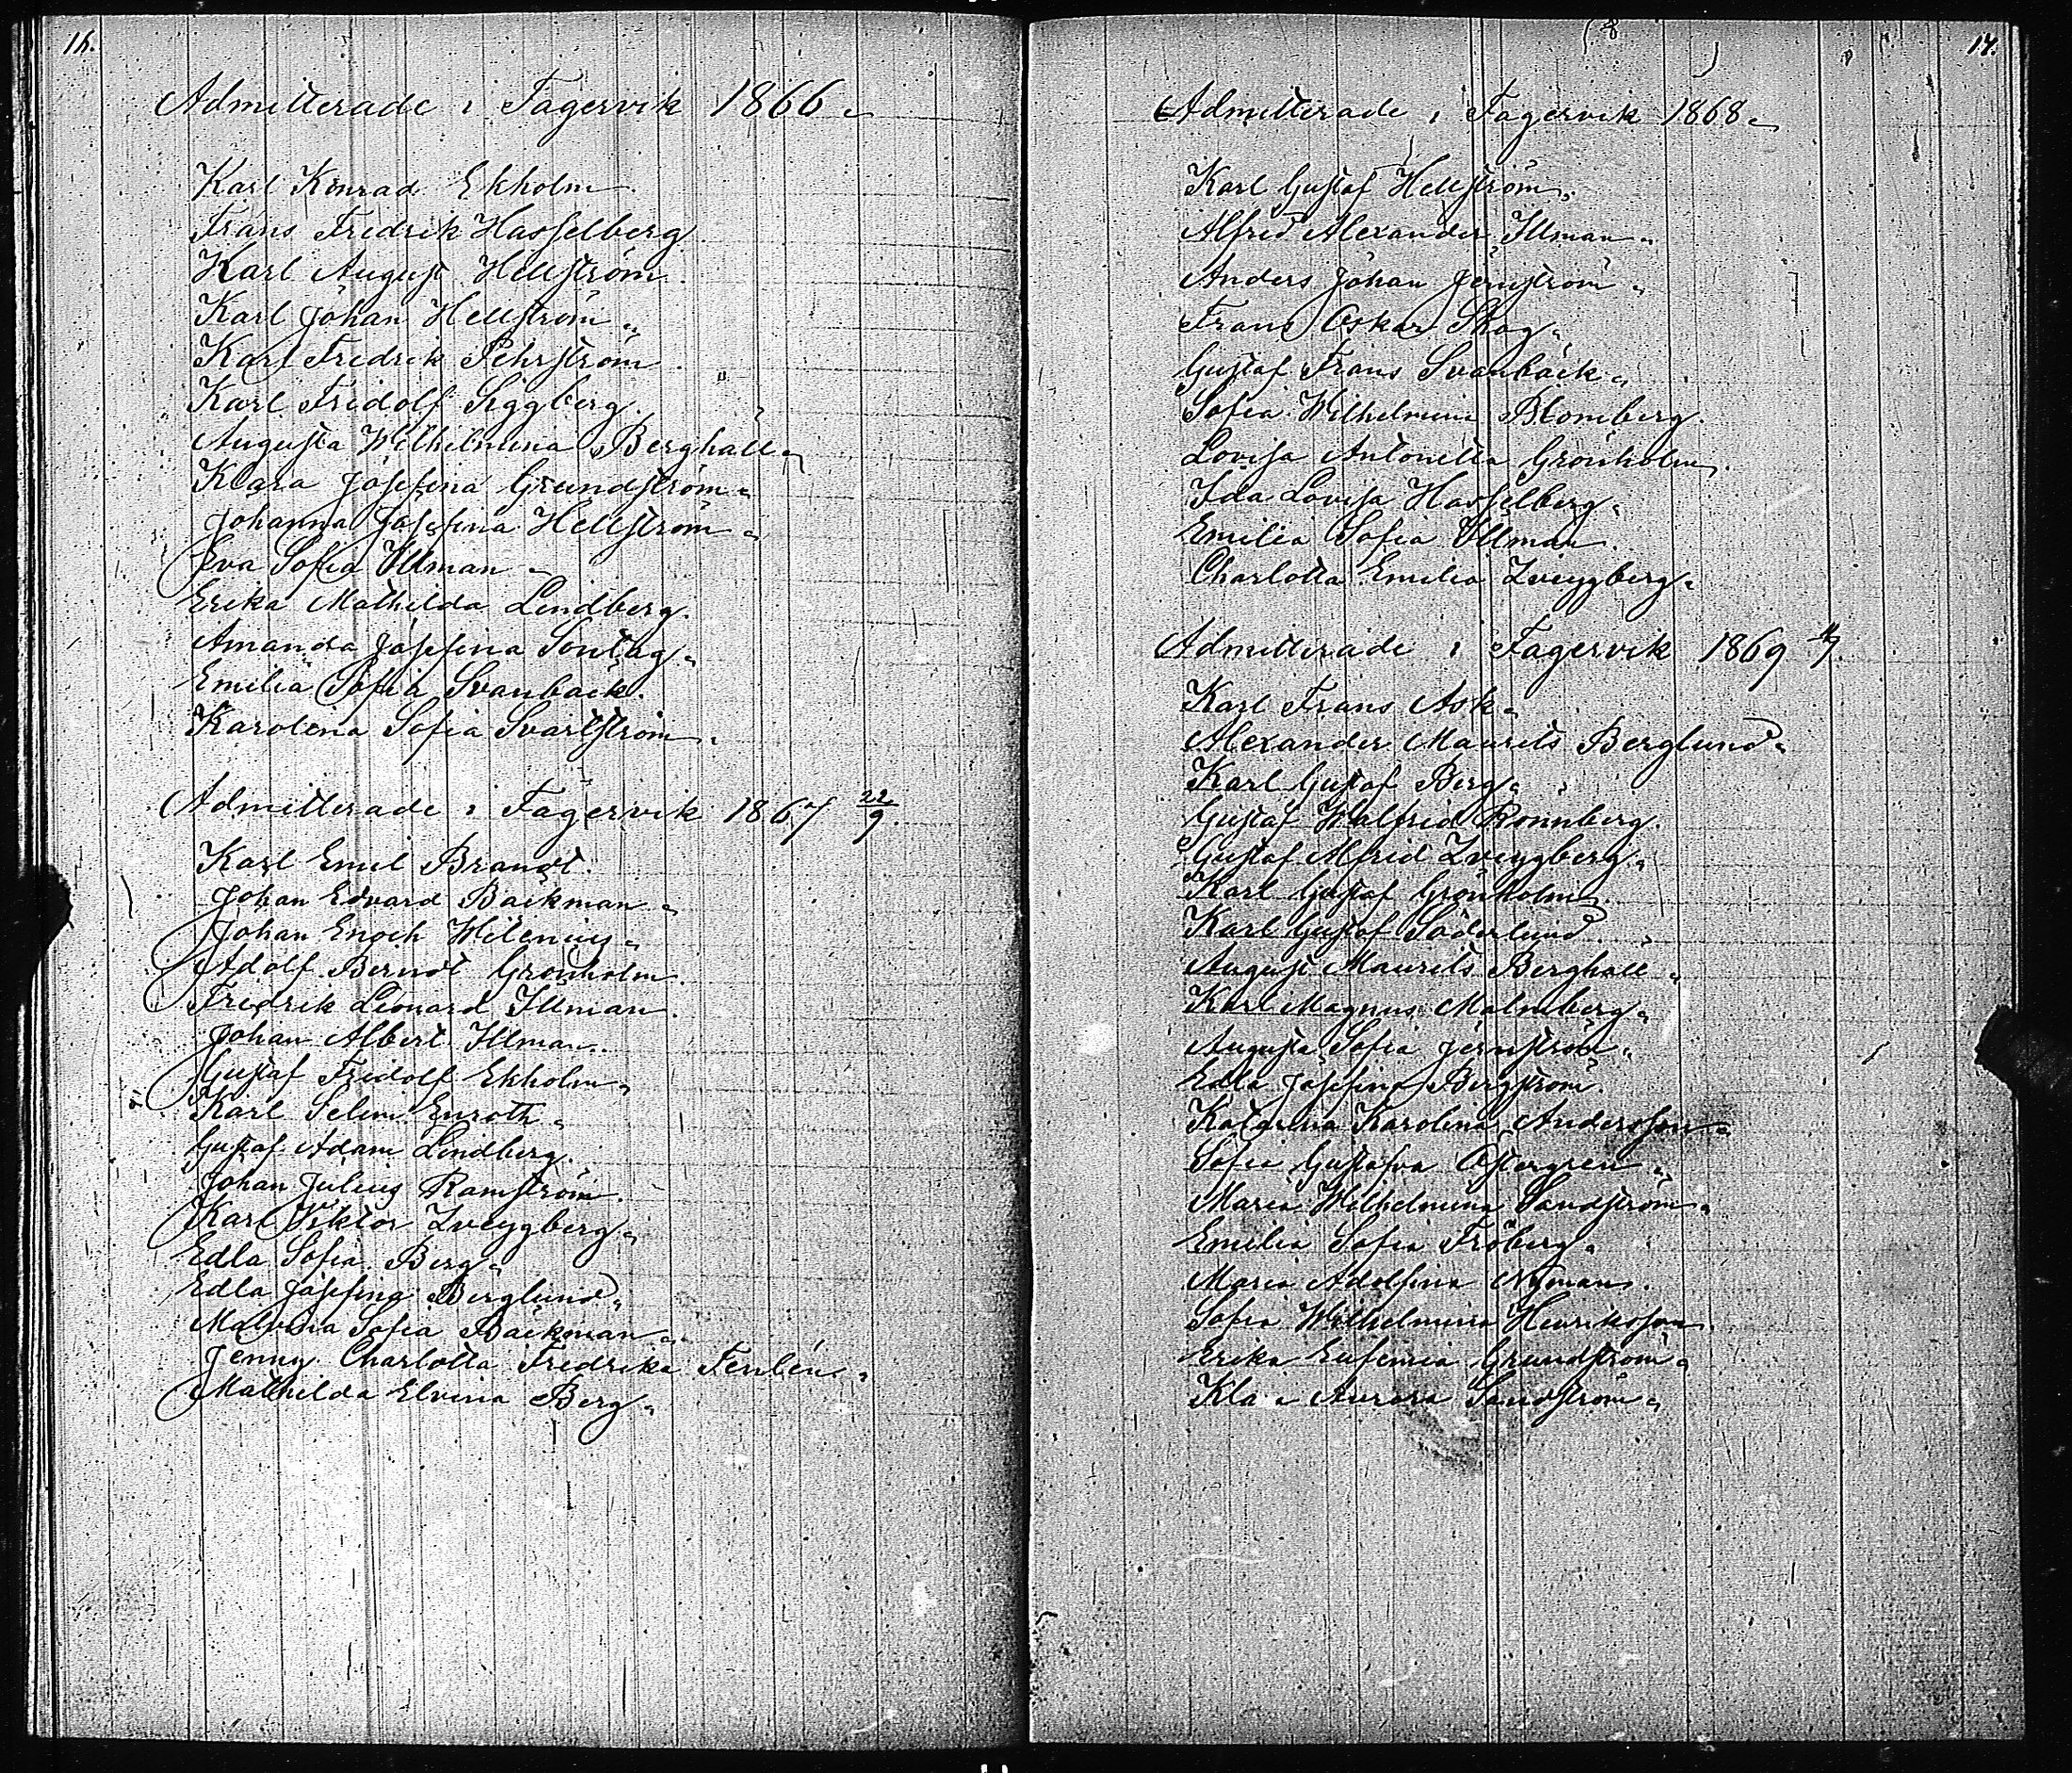 16.
Admitterade i Fagervik 1866.
Karl Konrad Ekholm.
Frans Fredrik Hasselberg
Karl August Hellström.
Karl Johan Hellström.
Karl Fredrik Pehrström.
Karl Fridolf Siggberg.
Augusta Wilhelmina Berghäll.
Klara Josefina Grundström.
Johanna Josefina Hellström.
Eva Sofia Illman.
Erika Mathilda Lindberg.
Amanda Josefina Sontag.
Emilia Sofia Svanbäck.
Karolina Sofia Svartström.
Admitterade i Fagervik 1867 22/9.
Karl Emil Brandt.
Johan Edvard Bäckman.
Johan Enoch Wilenius.
Adolf Berndt Grönholm.
Fredrik Leonard Illman.
Johan Albert Illman.
Gustaf Fridolf Ekholm.
Karl Selim Enroth.
Gustaf Adam Lindberg.
Johan Julius Ramström.
Karl Viktor Zweygberg.
Edla Sofia Berg.
Edla Josefina Berglund.
Malvina Sofia Bäckman.
Jenny Charlotta Fredrika Ferlén.
Mathilda Elvina Berg.
17.
Admitterade i Fagervik 1868.
Karl Gustaf Hellström.
Alfred Alexander Illman.
Anders Johan Jernström.
Frans Oskar Skog.
Gustaf Frans Svanbäck.
Sofia Wilhelmina Blomberg.
Lovisa Antonetta Grönholm.
Ida Lovisa Hasselberg.
Emilia Sofia Illman.
Charlotta Emilia Zweygberg.
Admitterade i Fagervik 1869
Karl Frans Ask.
Alexander Maurits Berglund.
Karl Gustaf Berg.
Gustaf Walfrid Rönnberg.
Gustaf Alfrid Zweygberg.
Karl Gustaf Grönholm.
Karl Gustaf Söderlund.
August Maurits Berghäll.
Karl Magnus Malmberg.
Augusta Sofia Jernström.
Edla Josefina Bergström.
Katarina Karolina Andersson.
Sofia Gustafva Östergren.
Maria Wilhelmina Sandström.
Emilia Sofia Fröberg.
Maria Adolfina Nyman.
Sofia Wilhelmina Henriksson.
Erika Eufemia Grundström.
Kla a Aurora Sandström.